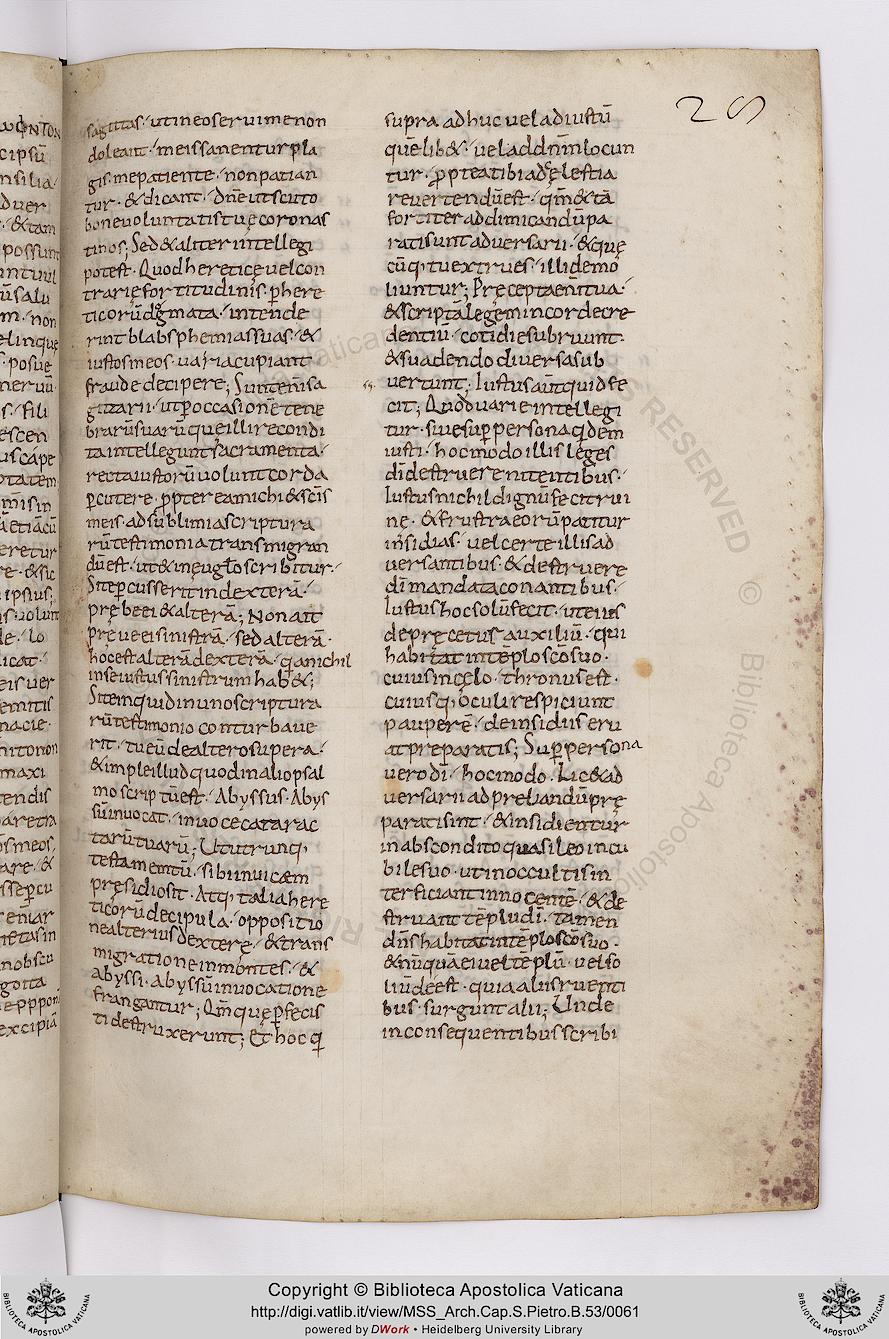 28
sagittas · ut in eo servi me non
doleant · me is sanentur pla
gis · me patiente · non patian
tur · & dicant · dn̄e ut scuto
bone voluntatis tuę coronas
ti nos ; Sed & aliter intellegi
potest · Quod hereticę vel con
trarię fortitudinis · p̄ here
ticorū dogmata · intende
rint blabsphemias suas · &
iustos meos · varia cupiant
fraude decipere ; Sunt eni͞ sa
gittarii · ut p̄ occasionē tene
brarū suarū quę illi recondi
ta intellegunt sacramenta ·
recta iustorū volunt corda
p̄cutere · p̄pterea michi & sc̄is
meis · ad sublimia scriptura
rū testimonia transmigran
dū est · ut & in ęug̅lo scribitur ·
Si te p̄cusserit in dexterā ·
prębe ei & alterā ; Non ait
pręve ei sinistrā · sed alterā ·
hoc est alterā dexterā · q̄a nichil
in se iustus sinistrum hab& ;
Si te inquid in uno scriptura
rū testimonio conturbave
rit · tu eū de altero supera ·
& imple illud quod in alio psal
mo scriptū est · Abyssus · Abys
sū invocat · in voce catarac
tarū tuarū ; Ut utrunq;
testamentū · sibi invicæm
pręsidio sit · Atq; talia here
ticorū decipula · oppositio
ne alterius dexterę · & trans
migratione in montes · &
abyssi · abyssū invocatione
frangantur ; Qm̄ quę p̄fecis
ti destruxerunt ; Et hoc q̄
supra adhuc vel ad iustū
quē lib& · vel ad dn̄m locun
tur · p̄pterea tibi ad cęlestia
revertendū est · qm̄ & tā
fortiter ad dimicandū pa
rati sunt adversarii · & quę
cūq; tu extrues · illi demo
liuntur ; Pręcepta eni͞ tua ·
& scriptā legem in corde cre
dentiū · cotidie subruunt ·
& suadendo diversa sub
vertunt ; Iustus aūt quid fe
cit ; Quod varie intellegi
tur · sive sup̄ persona q̄dem
iusti · hoc modo illis leges
di͞ destruere nitentibus ·
Iustus nichil dignū fecit rui
ne · & frustra eorū patitur
insidias · vel certe illis ad
versantibus · & destruere
di͞ mandata conantibus ·
Iustus hoc solū fecit · ut eius
depręcetur auxiliū · qui
habitat in tēplo sc̄o suo ·
cuius in cęlo · thronus est ·
cuiusq; oculi respiciunt
pauperē · de insidiis eru
at pręparatis ; Sup̄ persona
vero di͞ · hoc modo · Lic& ad
versarii ad prebandū prę
parati sint · & insidientur
in abscondito quasi leo in cu
bile suo · ut in occultis in
terficiant innocentē · & de
struant tēplū di͞ · tamen
dn̄s habitat in tēplo sc̄o suo ·
& nūquā ei vel tēplū · vel so
liū deest · quia aliis ruenti
bus · surgunt alii ; Unde
in consequentibus scribi
Copyright © Biblioteca Apostolica Vaticana
http://digi.vatlib.it/view/MSS_Arch.Cap.S.Pietro.B.53/0061
powered by DWork • Heidelberg University Library